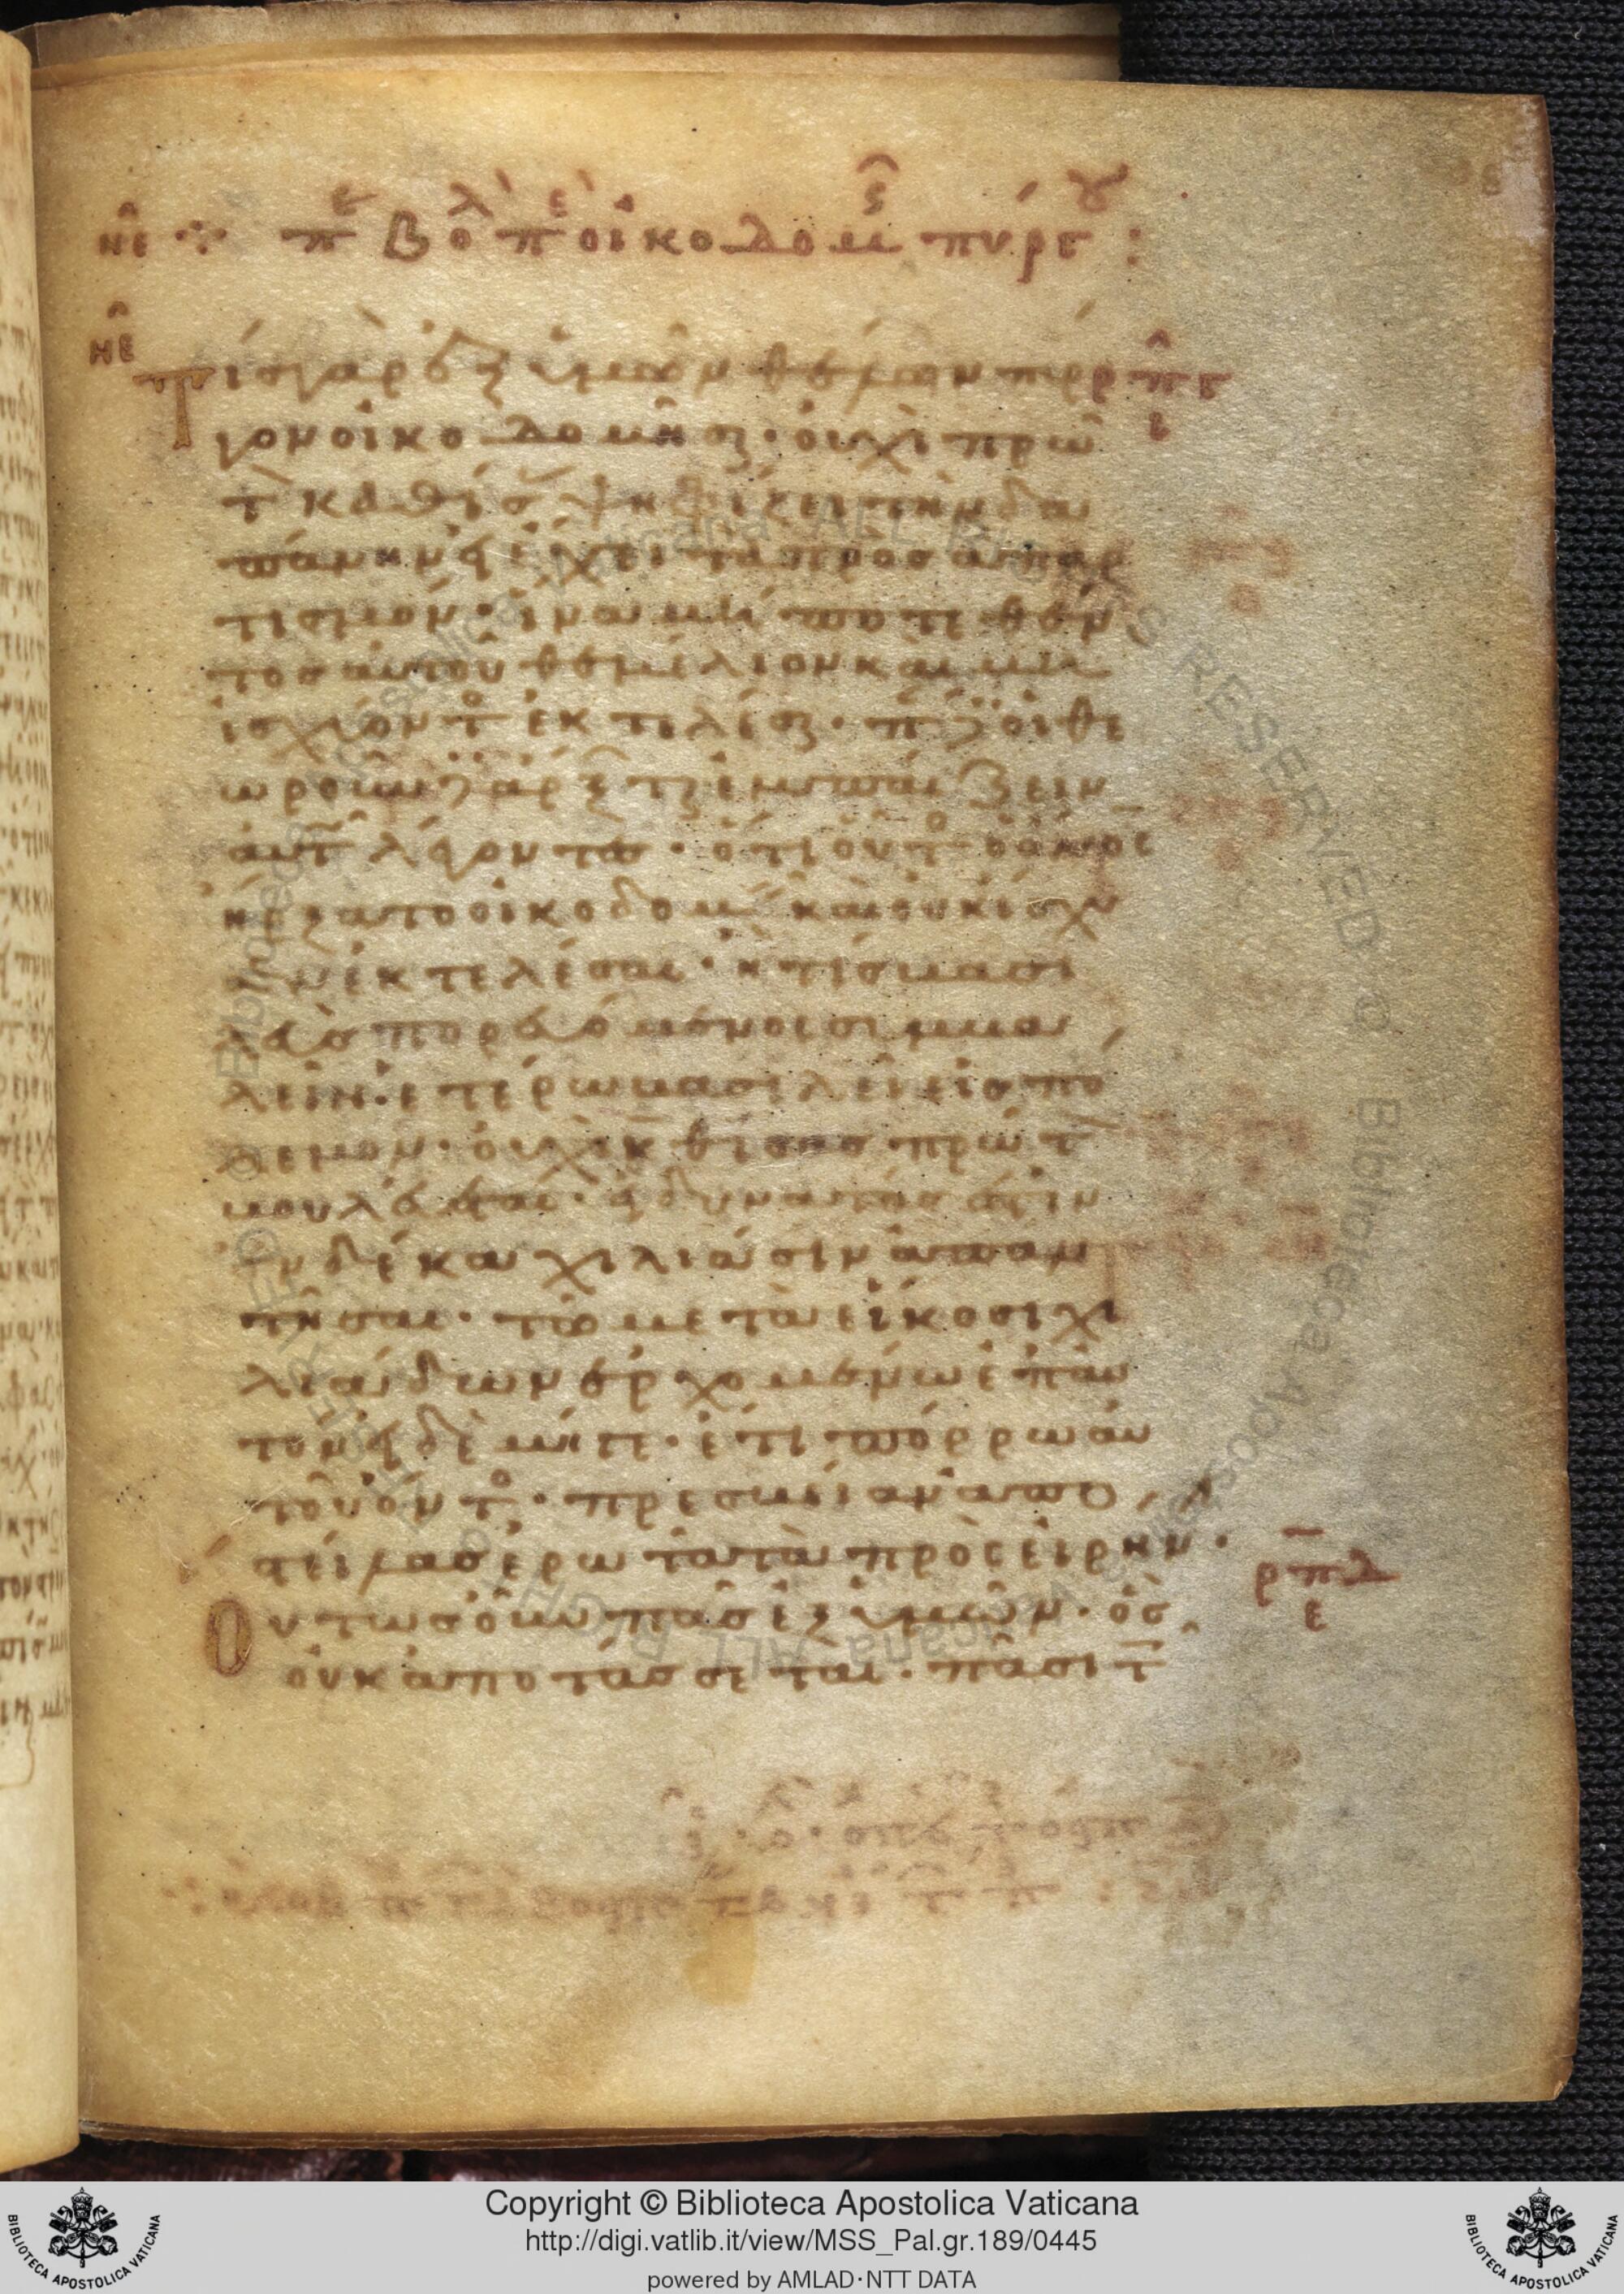 νε ⁘ πε Βολ πε οἰκοδομης πύργου :
νε
Τίς γὰρ ἐξ ὑμῶν θέλων πύρ ρπγ
γον οἰκοδομῆσαι · οὐχὶ πρῶ ε
τον καθίσας ψηφίζει τὴν δα
πάνην εἰ ἔχει τὰ πρὸς ἀπαρ
τισμόν · ἵνα μή ποτε θέν
τος αὐτοῦ θεμέλιον καὶ μὴ
ἰσχύοντος ἐκτελέσαι · πάντες οἱ θε
ωροῦντες ἄρξωνται ἐμπαίζειν
αὐτῷ λέγοντες · ὅτι οὗτος ὁ ἄνος
ἤρξατο οἰκοδομεῖν καὶ οὐκ ἴσχυ
σεν ἐκτελέσαι · ἢ τίς βασι
λεὺς πορευόμενος συμβα
λεῖν ἑτέρω βασιλεῖ εἰς πό
λεμον · οὐχὶ καθίσας πρῶτον
βουλεύεται · εἰ δυνατός ἐστιν
ἐν δέκα χιλιάσιν ἀπαν
τῆσαι · τῶ μετὰ εἴκοσι χι
λιάδων ἐρχομένω ἐπ' αὐ
τόν εἰ δὲ μή γε · ἔτι πόρρω αὐ
τοῦ ὄντος · πρεσβείαν ἀπο
στείλας ἐρωτᾶ τὰ πρὸς εἰρήνην · ρπδ
Οὕτως οὖν πᾶς ἐξ ὑμῶν · ὃς ε
οὐκ ἀποτάσσεται · πᾶσι τοῖς
Copyright © Biblioteca Apostolica Vaticana
http://digi.vatlib.it/view/MSS_Pal.gr.189/0445
powered by AMLAD·NTT DATA
BIBLIOTECA APOSTOLICA VATICANA
BIBLIOTECA APOSTOLICA VATICANA